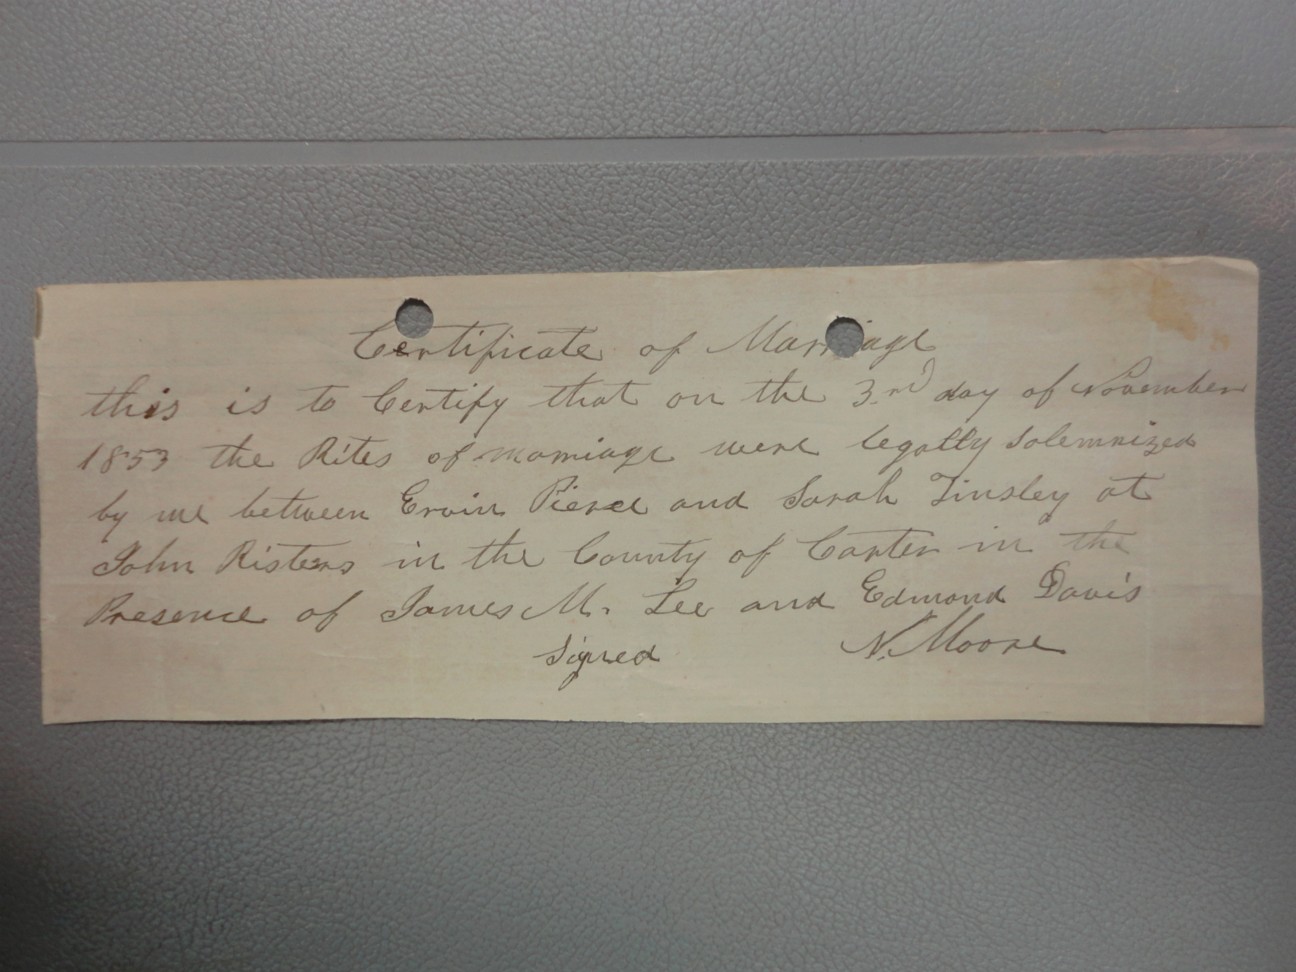 Certificate of Marriage
this is to Certify that on the 3rd day of November
1853 the Rites of marriage were legally Solemnized
by me between Ervin Pierce and Sarah Tinsley at
John Risters in the County of Carter in the
Presence of James M. Lee and Edmond Davis
Signed N. Moore